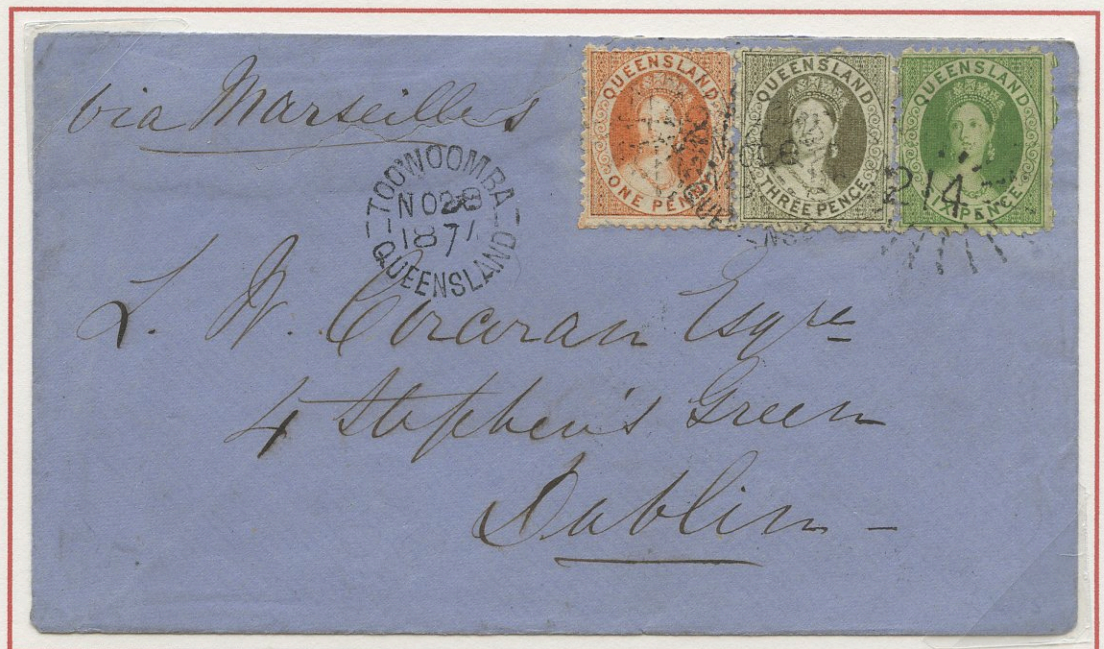 via Marseilles
QUEENSLAND
ONE PENNY
QUEENSLAND
THREE PENCE
QUEENSLAND
SIX PENCE
214
TOOWOOMBA
NO 28
187
QUEENSLAND
L. W. Corcoran Esqre
4 Stephen's Green
Dublin -